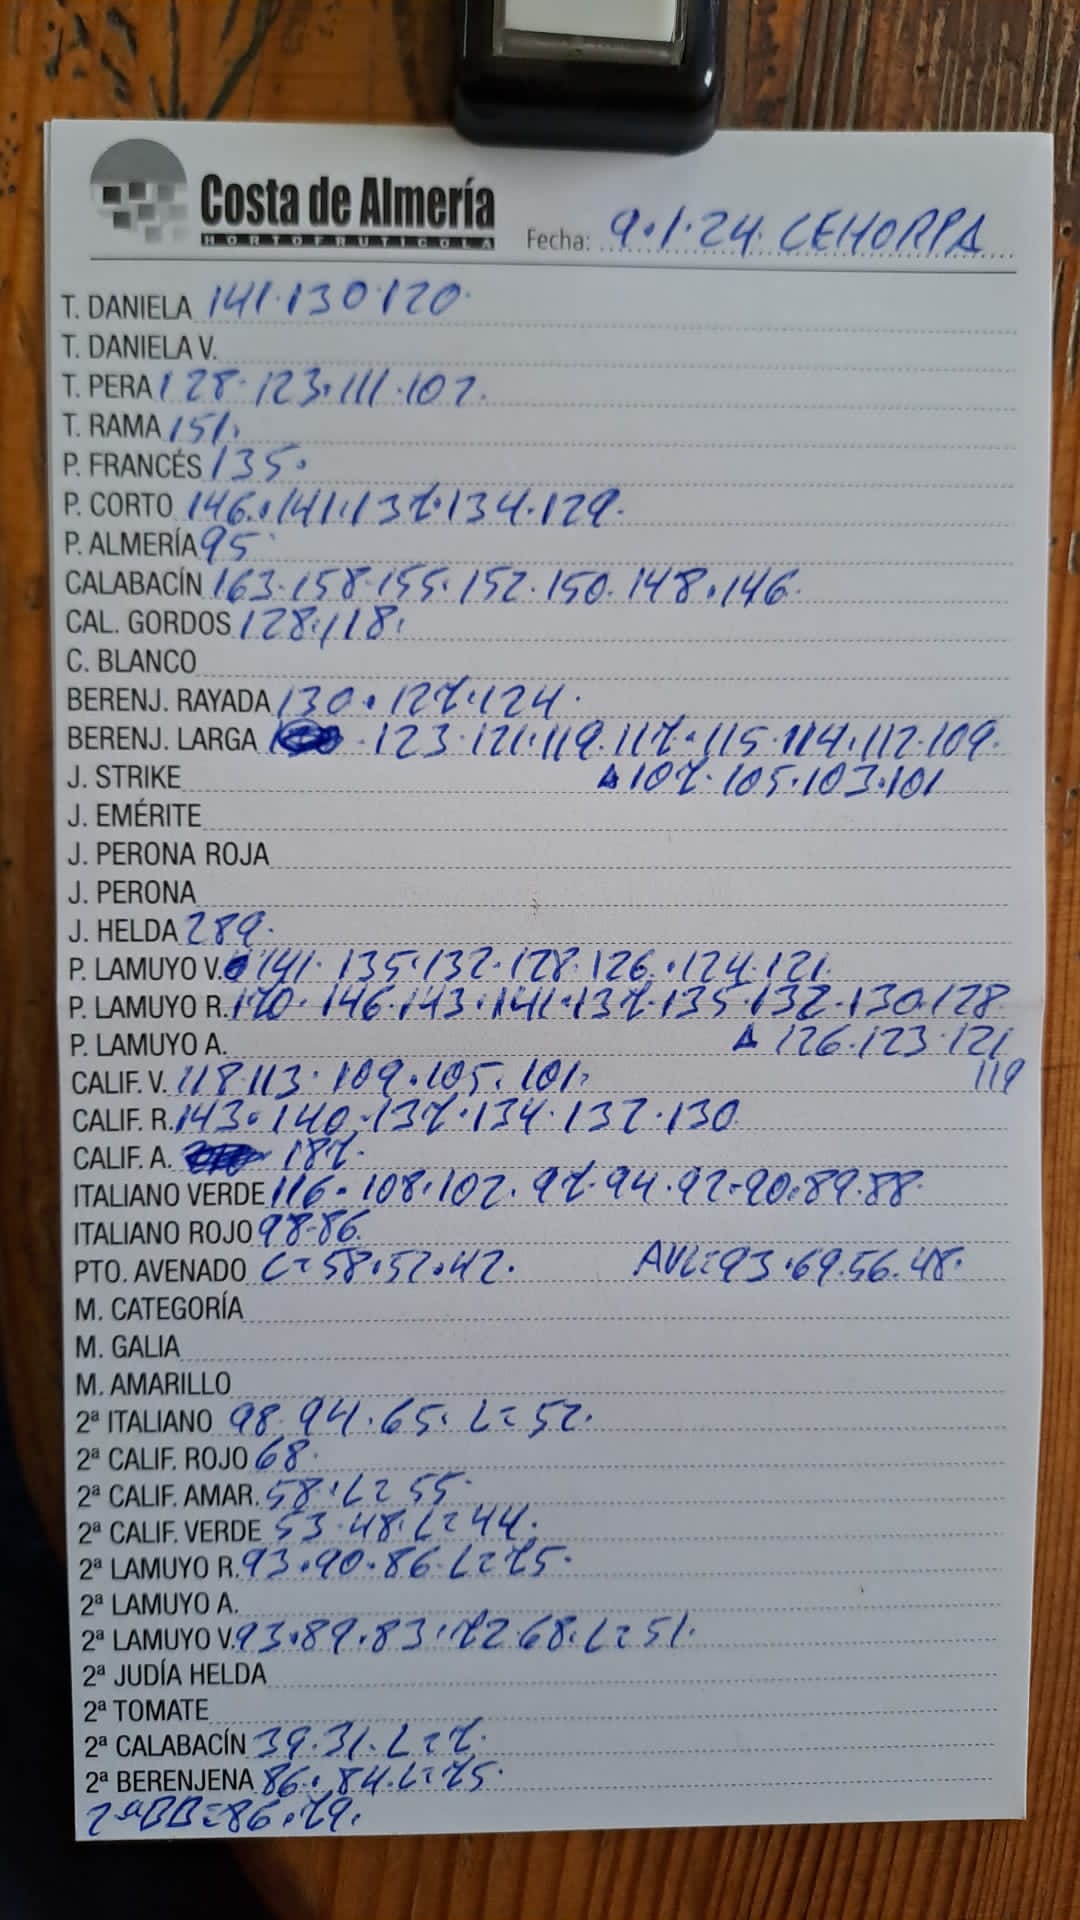 Costa de Almería
HORTOFRUTICOLA
Fecha: 9.1.24. CEHORPA
T. DANIELA 141.130.120.
T. DANIELA V.
T. PERA 128.123.111.102.
T. RAMA 151.
P. FRANCÉS 135.
P. CORTO 146.141.137.134.129.
P. ALMERÍA 95
CALABACÍN 163.158.155.152.150.148.146.
CAL. GORDOS 128.118.
C. BLANCO
BERENJ. RAYADA 130.127.124.
BERENJ. LARGA .123.121.119.117.115.114.112.109.
J. STRIKE 107.105.103.101
J. EMÉRITE
J. PERONA ROJA
J. PERONA
J. HELDA 289.
P. LAMUYO V. 141.135.132.128.126.124.121.
P. LAMUYO R. 170.146.143.141.137.135.132.130.128
P. LAMUYO A. 126.123.121
119
CALIF. V. 118.113.109.105.101.
CALIF. R. 143.140.137.134.132.130
CALIF. A. 187.
ITALIANO VERDE 116.108.102.97.94.92.90.89.88.
ITALIANO ROJO 98.86.
PTO. AVENADO L=58.52.42. AVL=93.69.56.48.
M. CATEGORÍA
M. GALIA
M. AMARILLO
2ª ITALIANO 98.94.65.L=52.
2ª CALIF. ROJO 68.
2ª CALIF. AMAR. 58.L=55.
2ª CALIF. VERDE 53.48.L=44.
2ª LAMUYO R. 93.90.86.L=75.
2ª LAMUYO A.
2ª LAMUYO V. 93.89.83.72.68.L=51.
2ª JUDÍA HELDA
2ª TOMATE
2ª CALABACÍN 39.31.L=7.
2ª BERENJENA 86.84.L=75.
2ªBB=86.79.